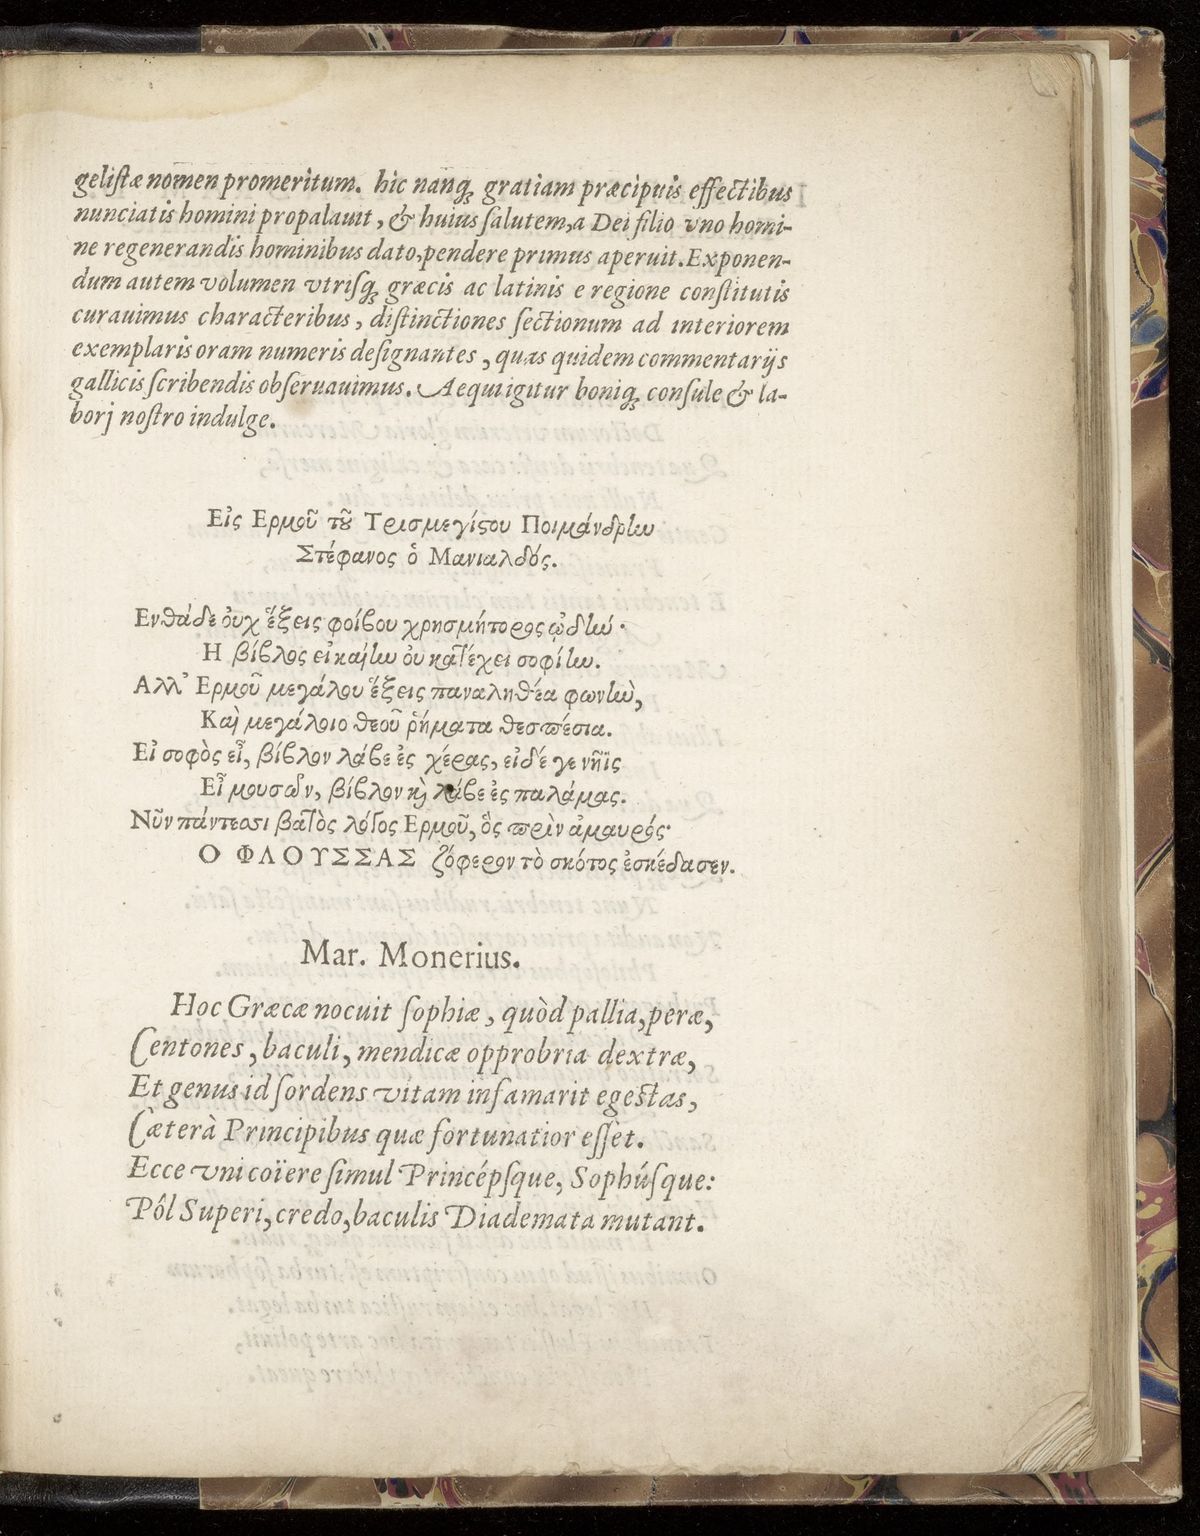 geliſtæ nomen promeritum. hic nanq; gratiam præcipuis effectibus
nunciatis homini propalauit, & huius ſalutem, a Dei filio vno homi-
ne regenerandis hominibus dato, pendere primus aperuit. Exponen-
dum autem volumen vtriſq; græcis ac latinis e regione conſtitutis
curauimus characteribus, diſtinctiones ſectionum ad interiorem
exemplaris oram numeris deſignantes, quas quidem commentarijs
gallicis ſcribendis obſeruauimus. Aequi igitur boniq; conſule & la-
borj noſtro indulge.
Εἰς Ερμοῦ τοῦ Τρισμεγίςου Ποιμάνδρην
Στέφανος ὁ Μανιαλδός.
Ενθάδε ὀυχ ἕξεις φοίβου χρησμήτορος ᾠδὴν·
Η βίβλος εἰκαίην ὀυ κατέχει σοφίην.
Αλλ' Ερμοῦ μεγάλου ἕξεις παναληθέα φωνὴν,
Καὶ μεγάλοιο θεοῦ ῥήματα θεσπέσια.
Εἰ σοφὸς εἶ, βίβλον λάβε ἐς χέρας, εἰδέ γε νῆϊς
Εἶ μουσῶν, βίβλον καὶ λάβε ἐς παλάμας.
Νῦν πάντεσσι βατὸς λόγος Ερμοῦ, ὃς πρὶν ἀμαυρός·
Ο ΦΛΟΥΣΣΑΣ ζόφερον τὸ σκότος ἐσκέδασεν.
Mar. Monerius.
Hoc Græcæ nocuit ſophiæ, quòd pallia, peræ,
Centones, baculi, mendicæ opprobria dextræ,
Et genus id ſordens vitam infamarit egeſtas,
Cæterà Principibus quæ fortunatior eſſet.
Ecce vni coïere ſimul Princépſque, Sophúſque:
Pôl Superi, credo, baculis Diademata mutant.